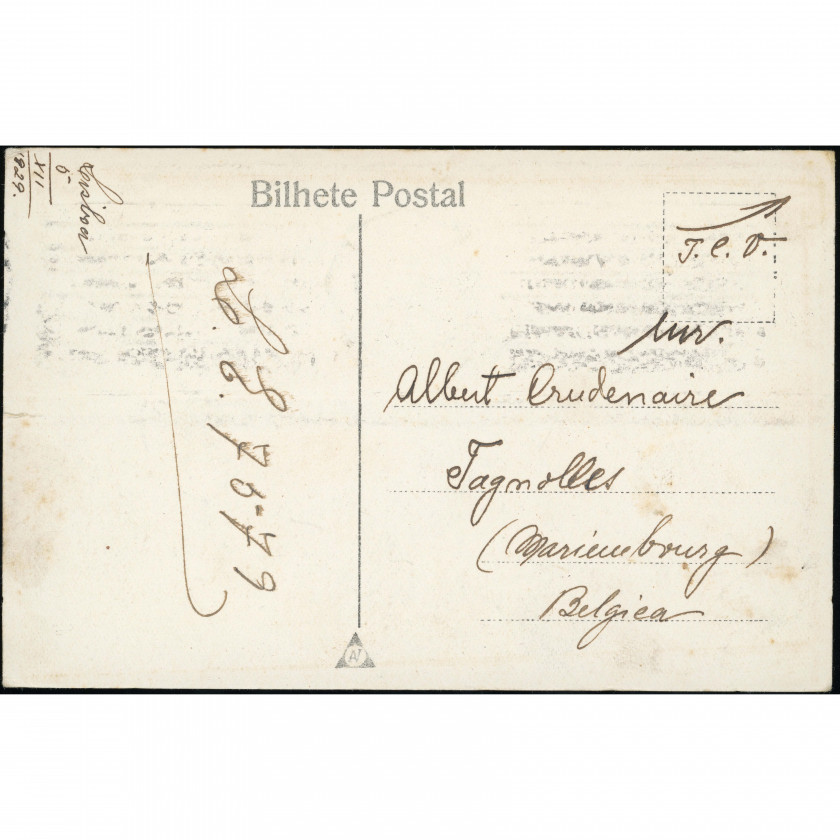 Bilhete Postal
Lisboa
6
XII
1929.
T.C.V.
Mr.
Albert Crudenaire
Fagnolles
(Mariembourg)
Belgica
7579